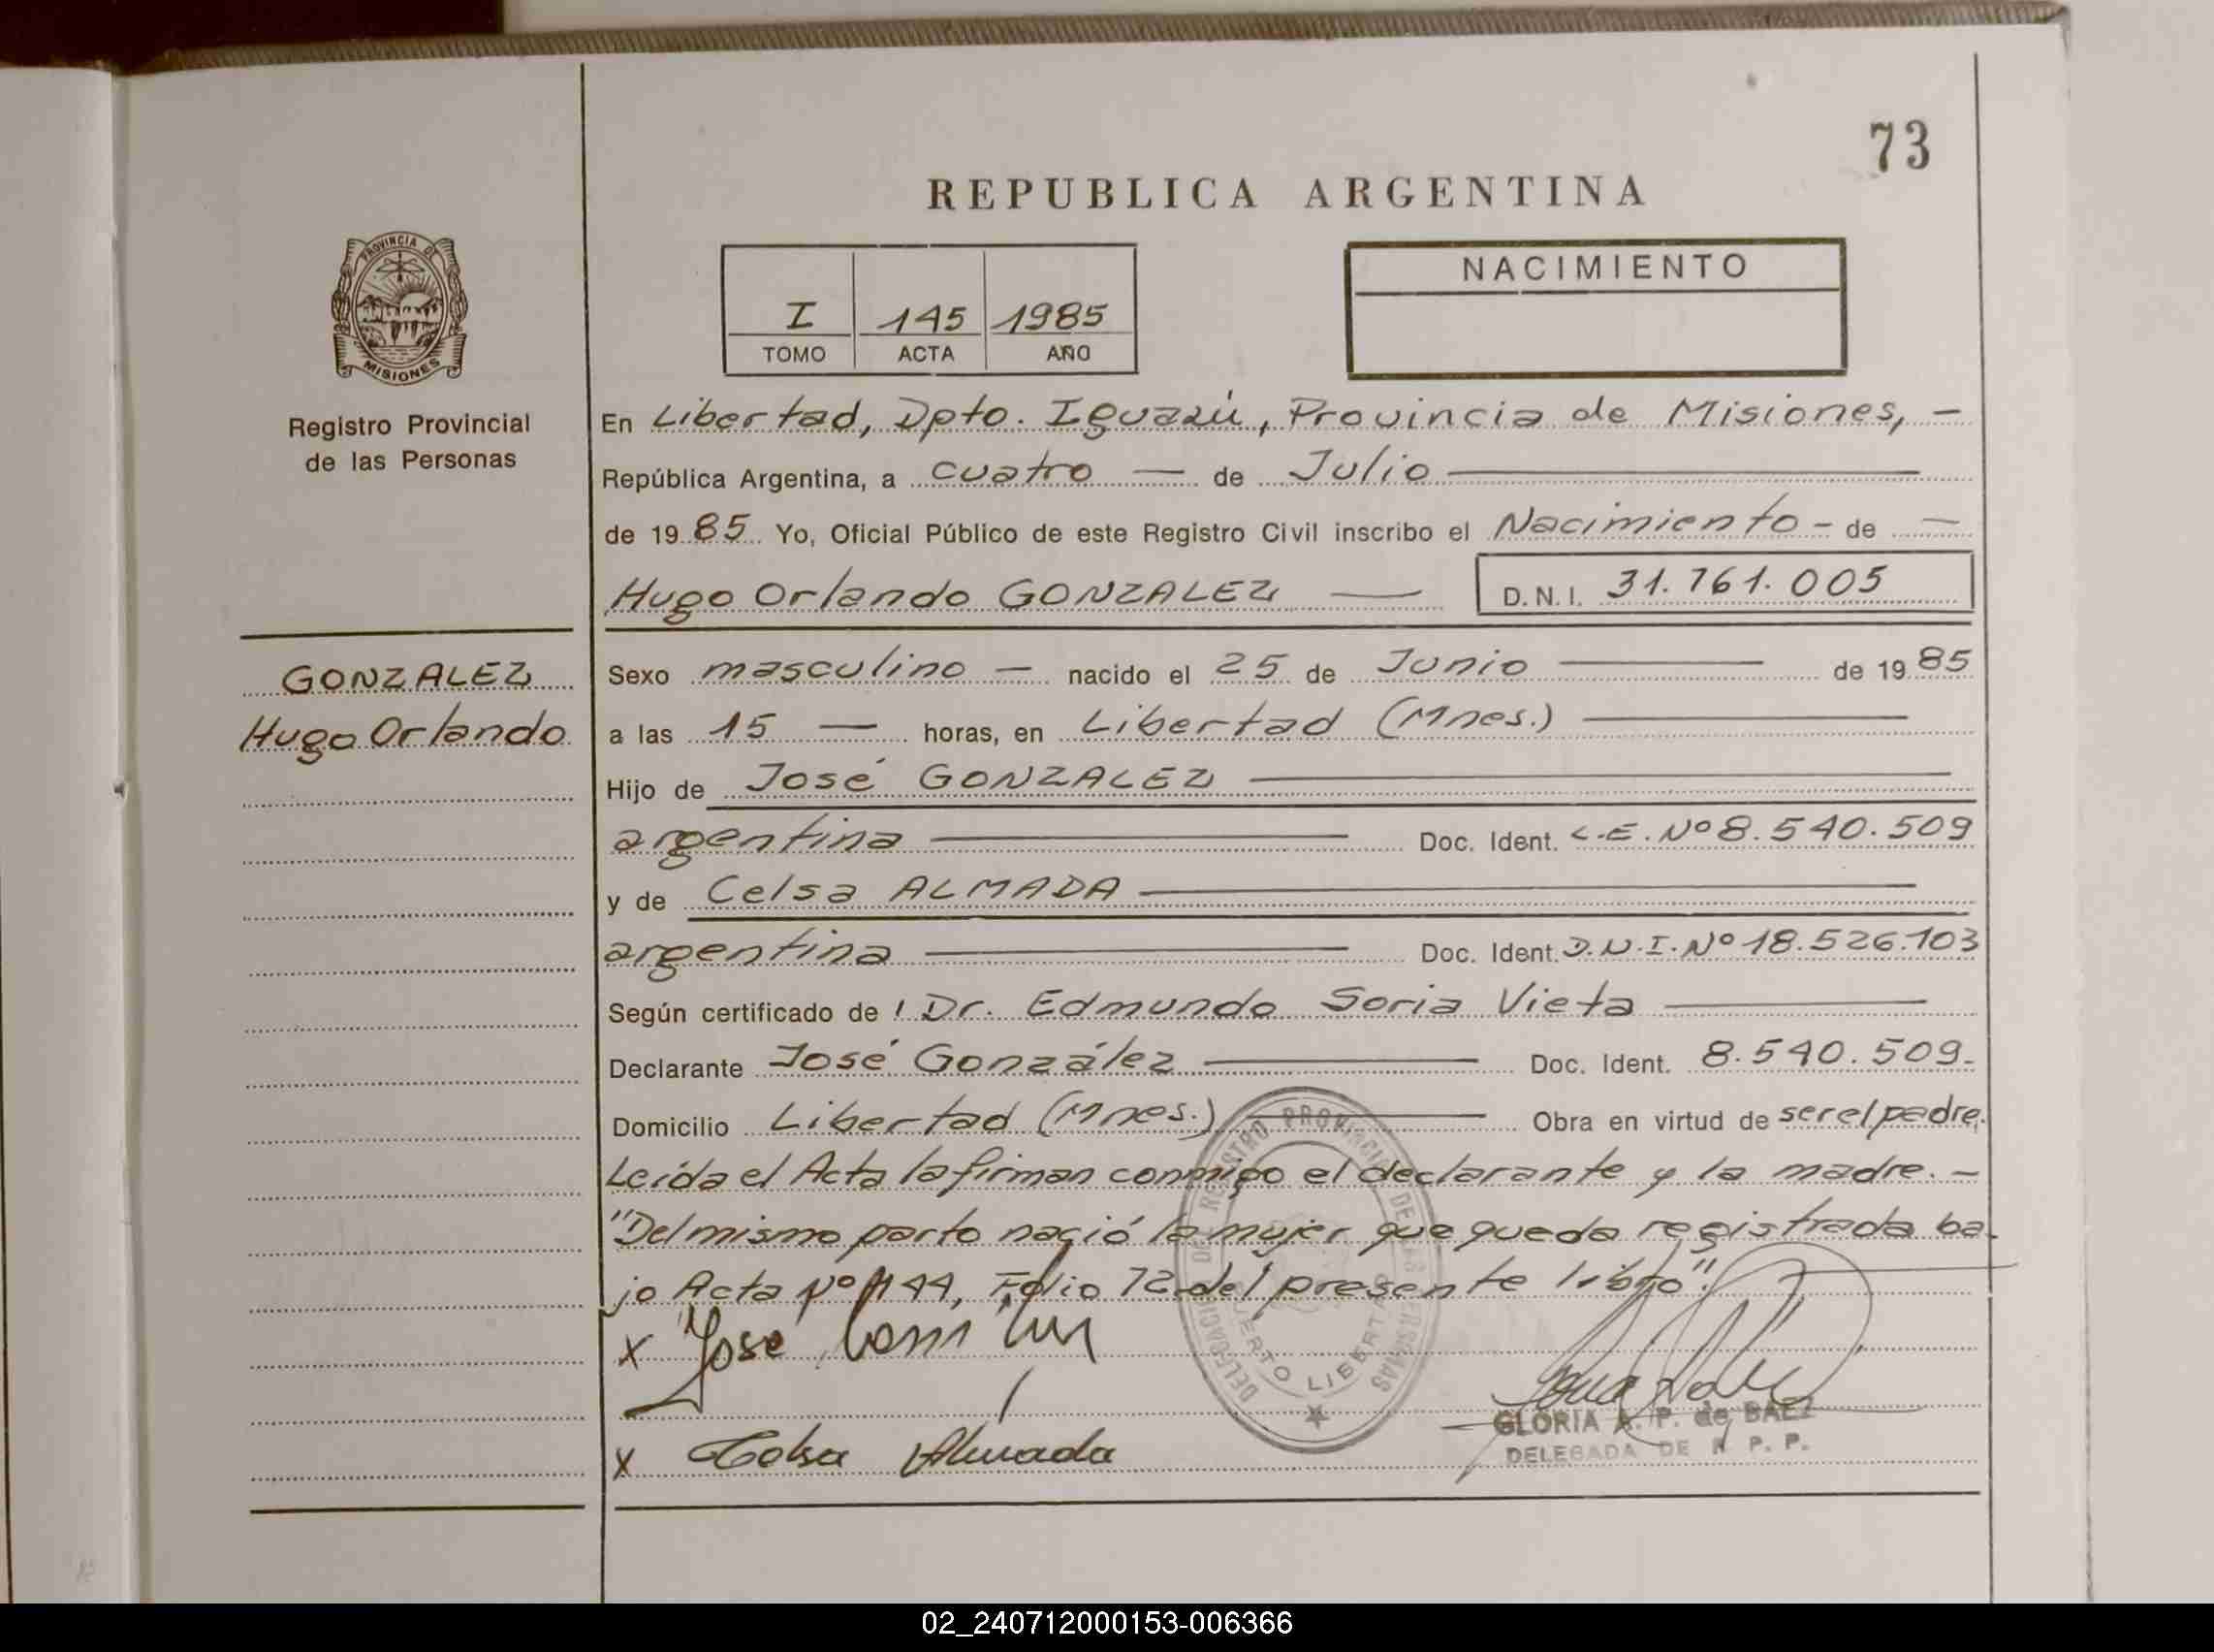 73
REPUBLICA ARGENTINA
PROVINCIA DE
MISIONES
NACIMIENTO
I 145 1985
TOMO ACTA AÑO
Registro Provincial
de las Personas
En Libertad, Dpto. Iguazú, Provincia de Misiones, -
República Argentina, a cuatro — de Julio —
de 19 85 Yo, Oficial Público de este Registro Civil inscribo el Nacimiento - de —
Hugo Orlando GONZALEZ — D.N.I. 31.761.005
GONZALEZ
Hugo Orlando
Sexo masculino — nacido el 25 de Junio — de 19 85
a las 15 — horas, en Libertad (Mnes.) —
Hijo de José GONZALEZ —
argentina — Doc. Ident. L.E. Nº 8.540.509
y de Celsa ALMADA —
argentina — Doc. Ident. D.N.I. Nº 18.526.103
Según certificado de l Dr. Edmundo Soria Vieta —
Declarante José González — Doc. Ident. 8.540.509-
Domicilio Libertad (Mnes.) — Obra en virtud de ser el padre.
Leída el Acta la firman conmigo el declarante y la madre. -
"Del mismo parto nació la mujer que queda registrada ba-
jo Acta Nº 144, Folio 72 del presente libro".
x José
x Celsa Almada
DELEGACION DEL REGISTRO PROVINCIAL DE LAS PERSONAS
PUERTO LIBERTAD
GLORIA A. P. de BAEZ
DELEGADA DE R. P. P.
02_240712000153-006366